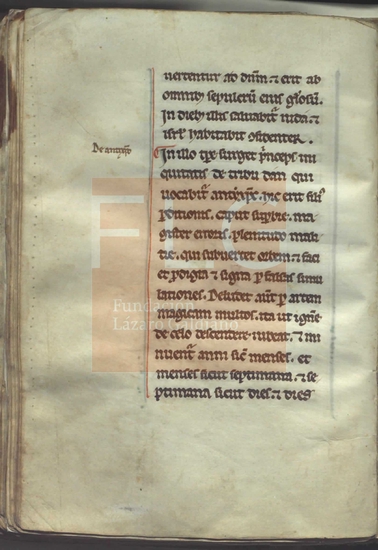 uertentur ad dnm̄ ⁊ erit ab
omnibꝫ sepulcrū eius glosū.
In diebꝫ illis saluabitᷣ iuda ⁊
isrl̄ habitabit ꝯfidenter.
De antixpo
In illo tp̄r surget pⁱnceps ini
quitatis de tribu dan qui
uocabitᷣ antixp̄s. hic erit filiꝰ
ꝑditionis. caput suꝑbie. ma
gister erroris. plenitudo mali
tie. qui subuertet orbem ⁊ faci
et ꝓdigia ⁊ signa ꝑ falsas simu
lationes. Deludet aut̄ ꝑ artem
magicam multos. ita ut ignē
de celo descendere iubeat. ⁊ mi
nuentᷣ anni sic̄ menses. et
menses sicut septimana. ⁊ se
ptimana sicut dies. ⁊ dies
Fundación
Lázaro Galdiano